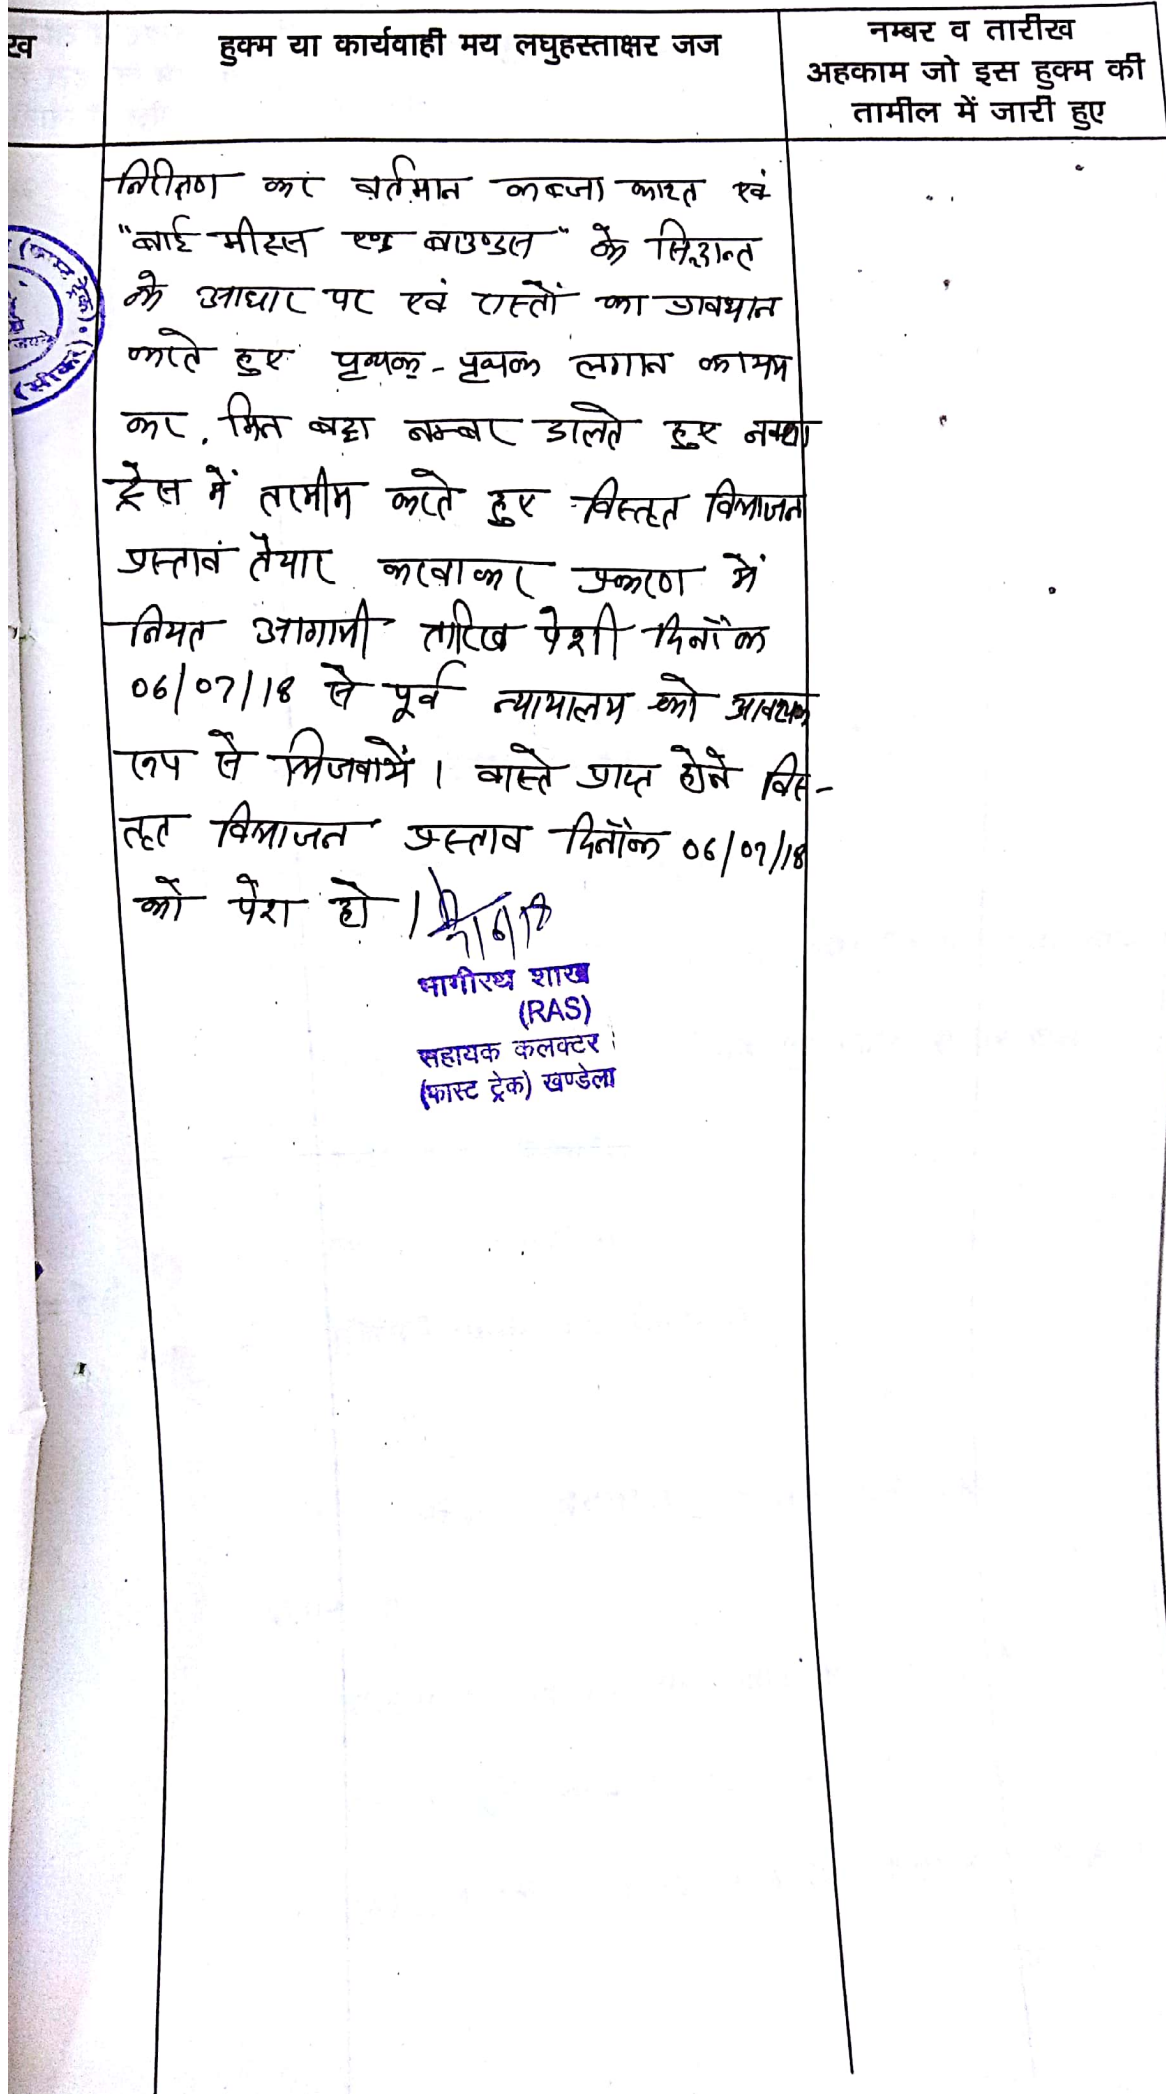 ख
हुक्म या कार्यवाही मय लघुहस्ताक्षर जज
नम्बर व तारीख
अहकाम जो इस हुक्म की
तामील में जारी हुए
निरीक्षण कर वर्तमान कब्जा काश्त एवं
"बाई मीट्स एण्ड बाउण्डस" के सिद्धान्त
के आधार पर एवं रास्तों का प्रावधान
करते हुए पृथक-पृथक लगान कायम
कर, मिन बट्टा नम्बर डालते हुए नक्शा
ट्रेस में तरमीम करते हुए विस्तृत विभाजन
प्रस्ताव तैयार करवाकर प्रकरण में
नियत आगामी तारिख पेशी दिनाँक
06/07/18 से पूर्व न्यायालय को आवश्यक
रूप से भिजवायें । वास्ते प्राप्त होने विस-
तृत विभाजन प्रस्ताव दिनाँक 06/07/18
को पेश हो ।
भागीरथ शाख
(RAS)
सहायक कलक्टर
(फास्ट ट्रेक) खण्डेला
(फास्ट ट्रेक)
(सीकर)